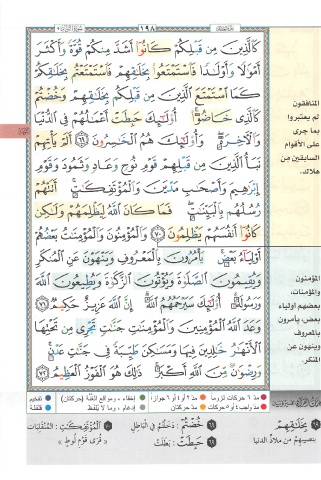 ١٩٨
كَالَّذِينَ مِن قَبْلِكُمْ كَانُوٓا أَشَدَّ مِنكُمْ قُوَّةً وَأَكْثَرَ
أَمْوَٰلًا وَأَوْلَٰدًا فَٱسْتَمْتَعُوا بِخَلَٰقِهِمْ فَٱسْتَمْتَعْتُم بِخَلَٰقِكُمْ
كَمَا ٱسْتَمْتَعَ ٱلَّذِينَ مِن قَبْلِكُم بِخَلَٰقِهِمْ وَخُضْتُمْ
كَٱلَّذِى خَاضُوٓا أُو۟لَٰٓئِكَ حَبِطَتْ أَعْمَٰلُهُمْ فِى ٱلدُّنْيَا
وَٱلْءَاخِرَةِ وَأُو۟لَٰٓئِكَ هُمُ ٱلْخَٰسِرُونَ ٦٩ أَلَمْ يَأْتِهِمْ
نَبَأُ ٱلَّذِينَ مِن قَبْلِهِمْ قَوْمِ نُوحٍ وَعَادٍ وَثَمُودَ وَقَوْمِ
إِبْرَٰهِيمَ وَأَصْحَٰبِ مَدْيَنَ وَٱلْمُؤْتَفِكَٰتِ أَتَتْهُمْ
رُسُلُهُم بِٱلْبَيِّنَٰتِ فَمَا كَانَ ٱللَّهُ لِيَظْلِمَهُمْ وَلَٰكِن
كَانُوٓا أَنفُسَهُمْ يَظْلِمُونَ ٧٠ وَٱلْمُؤْمِنُونَ وَٱلْمُؤْمِنَٰتُ بَعْضُهُمْ
أَوْلِيَآءُ بَعْضٍ يَأْمُرُونَ بِٱلْمَعْرُوفِ وَيَنْهَوْنَ عَنِ ٱلْمُنكَرِ
وَيُقِيمُونَ ٱلصَّلَوٰةَ وَيُؤْتُونَ ٱلزَّكَوٰةَ وَيُطِيعُونَ ٱللَّهَ
وَرَسُولَهُۥٓ أُو۟لَٰٓئِكَ سَيَرْحَمُهُمُ ٱللَّهُ إِنَّ ٱللَّهَ عَزِيزٌ حَكِيمٌ ٧١
وَعَدَ ٱللَّهُ ٱلْمُؤْمِنِينَ وَٱلْمُؤْمِنَٰتِ جَنَّٰتٍ تَجْرِى مِن تَحْتِهَا
ٱلْأَنْهَٰرُ خَٰلِدِينَ فِيهَا وَمَسَٰكِنَ طَيِّبَةً فِى جَنَّٰتِ عَدْنٍ
وَرِضْوَٰنٌ مِّنَ ٱللَّهِ أَكْبَرُ ذَٰلِكَ هُوَ ٱلْفَوْزُ ٱلْعَظِيمُ ٧٢
المنافقون
لم يعتبروا
بما جرى
على الأقوام
السابقين من
هلاك.
المؤمنون
والمؤمنات،
بعضهم أولياء
بعض، يأمرون
بالمعروف
وينهون عن
المنكر.
مدّ ٦ حركات لزوماً
مدّ ٢ أو ٤ أو ٦ جوازاً
إخفاء، ومواقع الغُنَّة (حركتان)
تفخيم
مدّ واجب ٤ أو ٥ حركات
مدّ حركتان
إدغام، وما لا يُلفَظ
قلقلة
٦٩ بِخَلَٰقِهِمْ
بنصيبهم من ملاذ الدنيا
٦٩ خُضْتُمْ : دَخَلْتُم فِي الْبَاطِلِ
٦٩ حَبِطَتْ : بَطَلَتْ
٧٠ الْمُؤْتَفِكَٰتِ : المُنقَلِبَاتِ
« قُرَى قَوْمِ لُوطٍ »